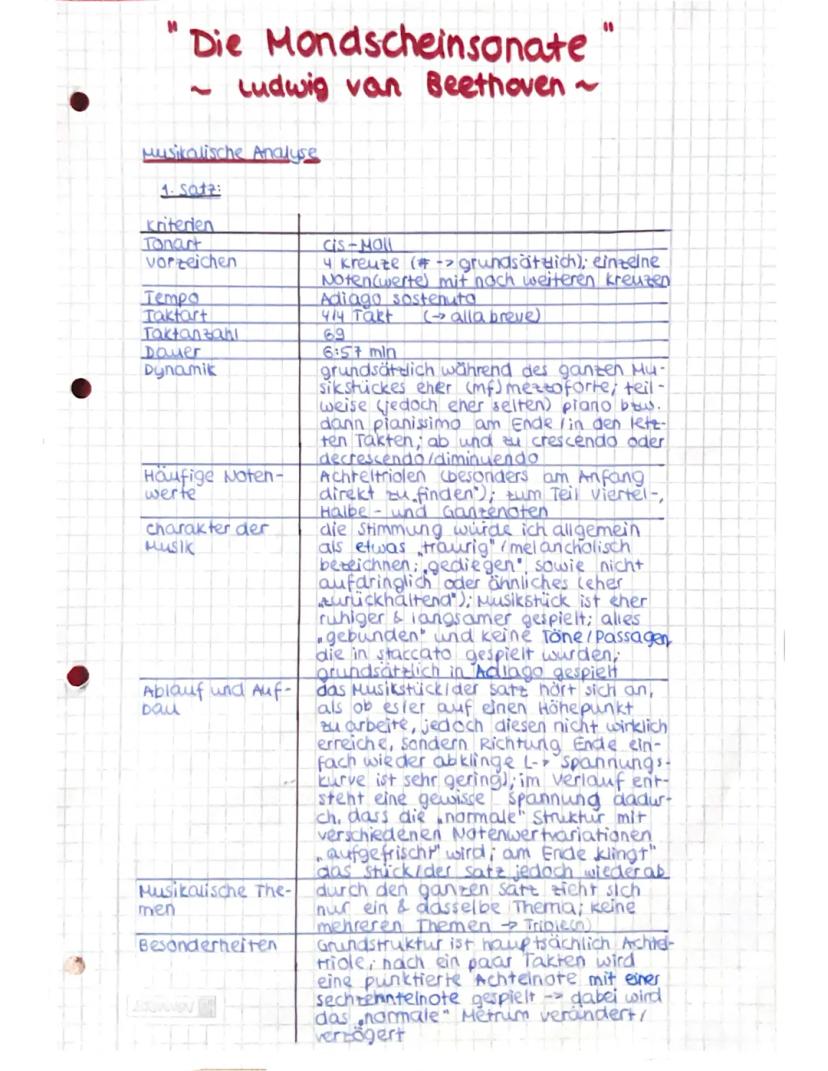 "Die Mondscheinsonate"
~ Ludwig van Beethoven ~
Musikalische Analyse
1. Satz:
Kriterien
Tonart cis-Moll
Vorzeichen 4 Kreuze (# -> grundsätzlich); einzelne
Noten(werte) mit noch weiteren Kreuzen
Tempo Adiago sostenuto
Taktart 4/4 Takt (-> alla breve)
Taktanzahl 69
Dauer 6:57 min
Dynamik grundsätzlich während des ganzen Mu-
sikstückes eher (mf) mezzoforte; teil-
weise (jedoch eher selten) piano bzw.
dann pianissimo am Ende/in den letz-
ten Takten; ab und zu crescendo oder
decrescendo/diminuendo
Häufige Noten- Achteltriolen (besonders am Anfang
werte direkt zu „finden"); zum Teil Viertel-,
Halbe- und Ganzenoten
Charakter der die Stimmung würde ich allgemein
Musik als etwas „traurig"/melancholisch
bezeichnen; „gediegen" sowie nicht
aufdringlich oder ähnliches (eher
„zurückhaltend"); Musikstück ist eher
ruhiger & langsamer gespielt; alles
„gebunden" und keine Töne/Passagen,
die in staccato gespielt wurden;
grundsätzlich in Adiago gespielt
Ablauf und Auf- das Musikstück/der Satz hört sich an,
bau als ob es/er auf einen Höhepunkt
zu arbeite, jedoch diesen nicht wirklich
erreiche, sondern Richtung Ende ein-
fach wieder abklinge (-> Spannungs-
kurve ist sehr gering); im Verlauf ent-
steht eine gewisse Spannung dadur-
ch, dass die „normale" Struktur mit
verschiedenen Notenwertvariationen
„aufgefrischt" wird; am Ende „klingt"
das Stück/der Satz jedoch wieder ab
Musikalische The- durch den ganzen Satz zieht sich
men nur ein & dasselbe Thema; keine
mehreren Themen -> Triole(n)
Besonderheiten Grundstruktur ist hauptsächlich Achtel-
triole; nach ein paar Takten wird
eine punktierte Achtelnote mit einer
Sechzehntelnote gespielt -> dabei wird
das „normale" Metrum verändert/
verzögert